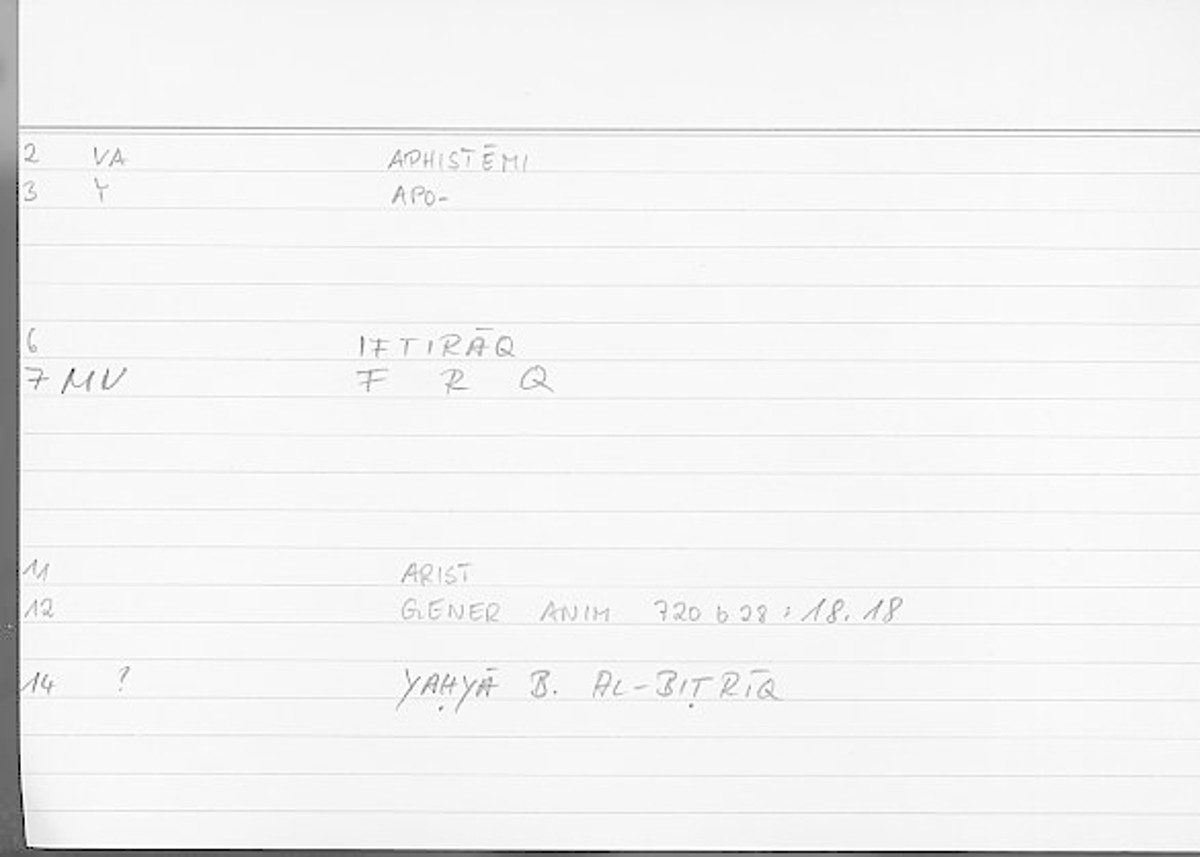 2 VA APHISTĒMI
3 Y APO-
6 IFTIRĀQ
7 MV F R Q
11 ARIST
12 GENER ANIM 720 b 28 : 18.18
14 ? YAḤYĀ B. AL-BIṬRĪQ